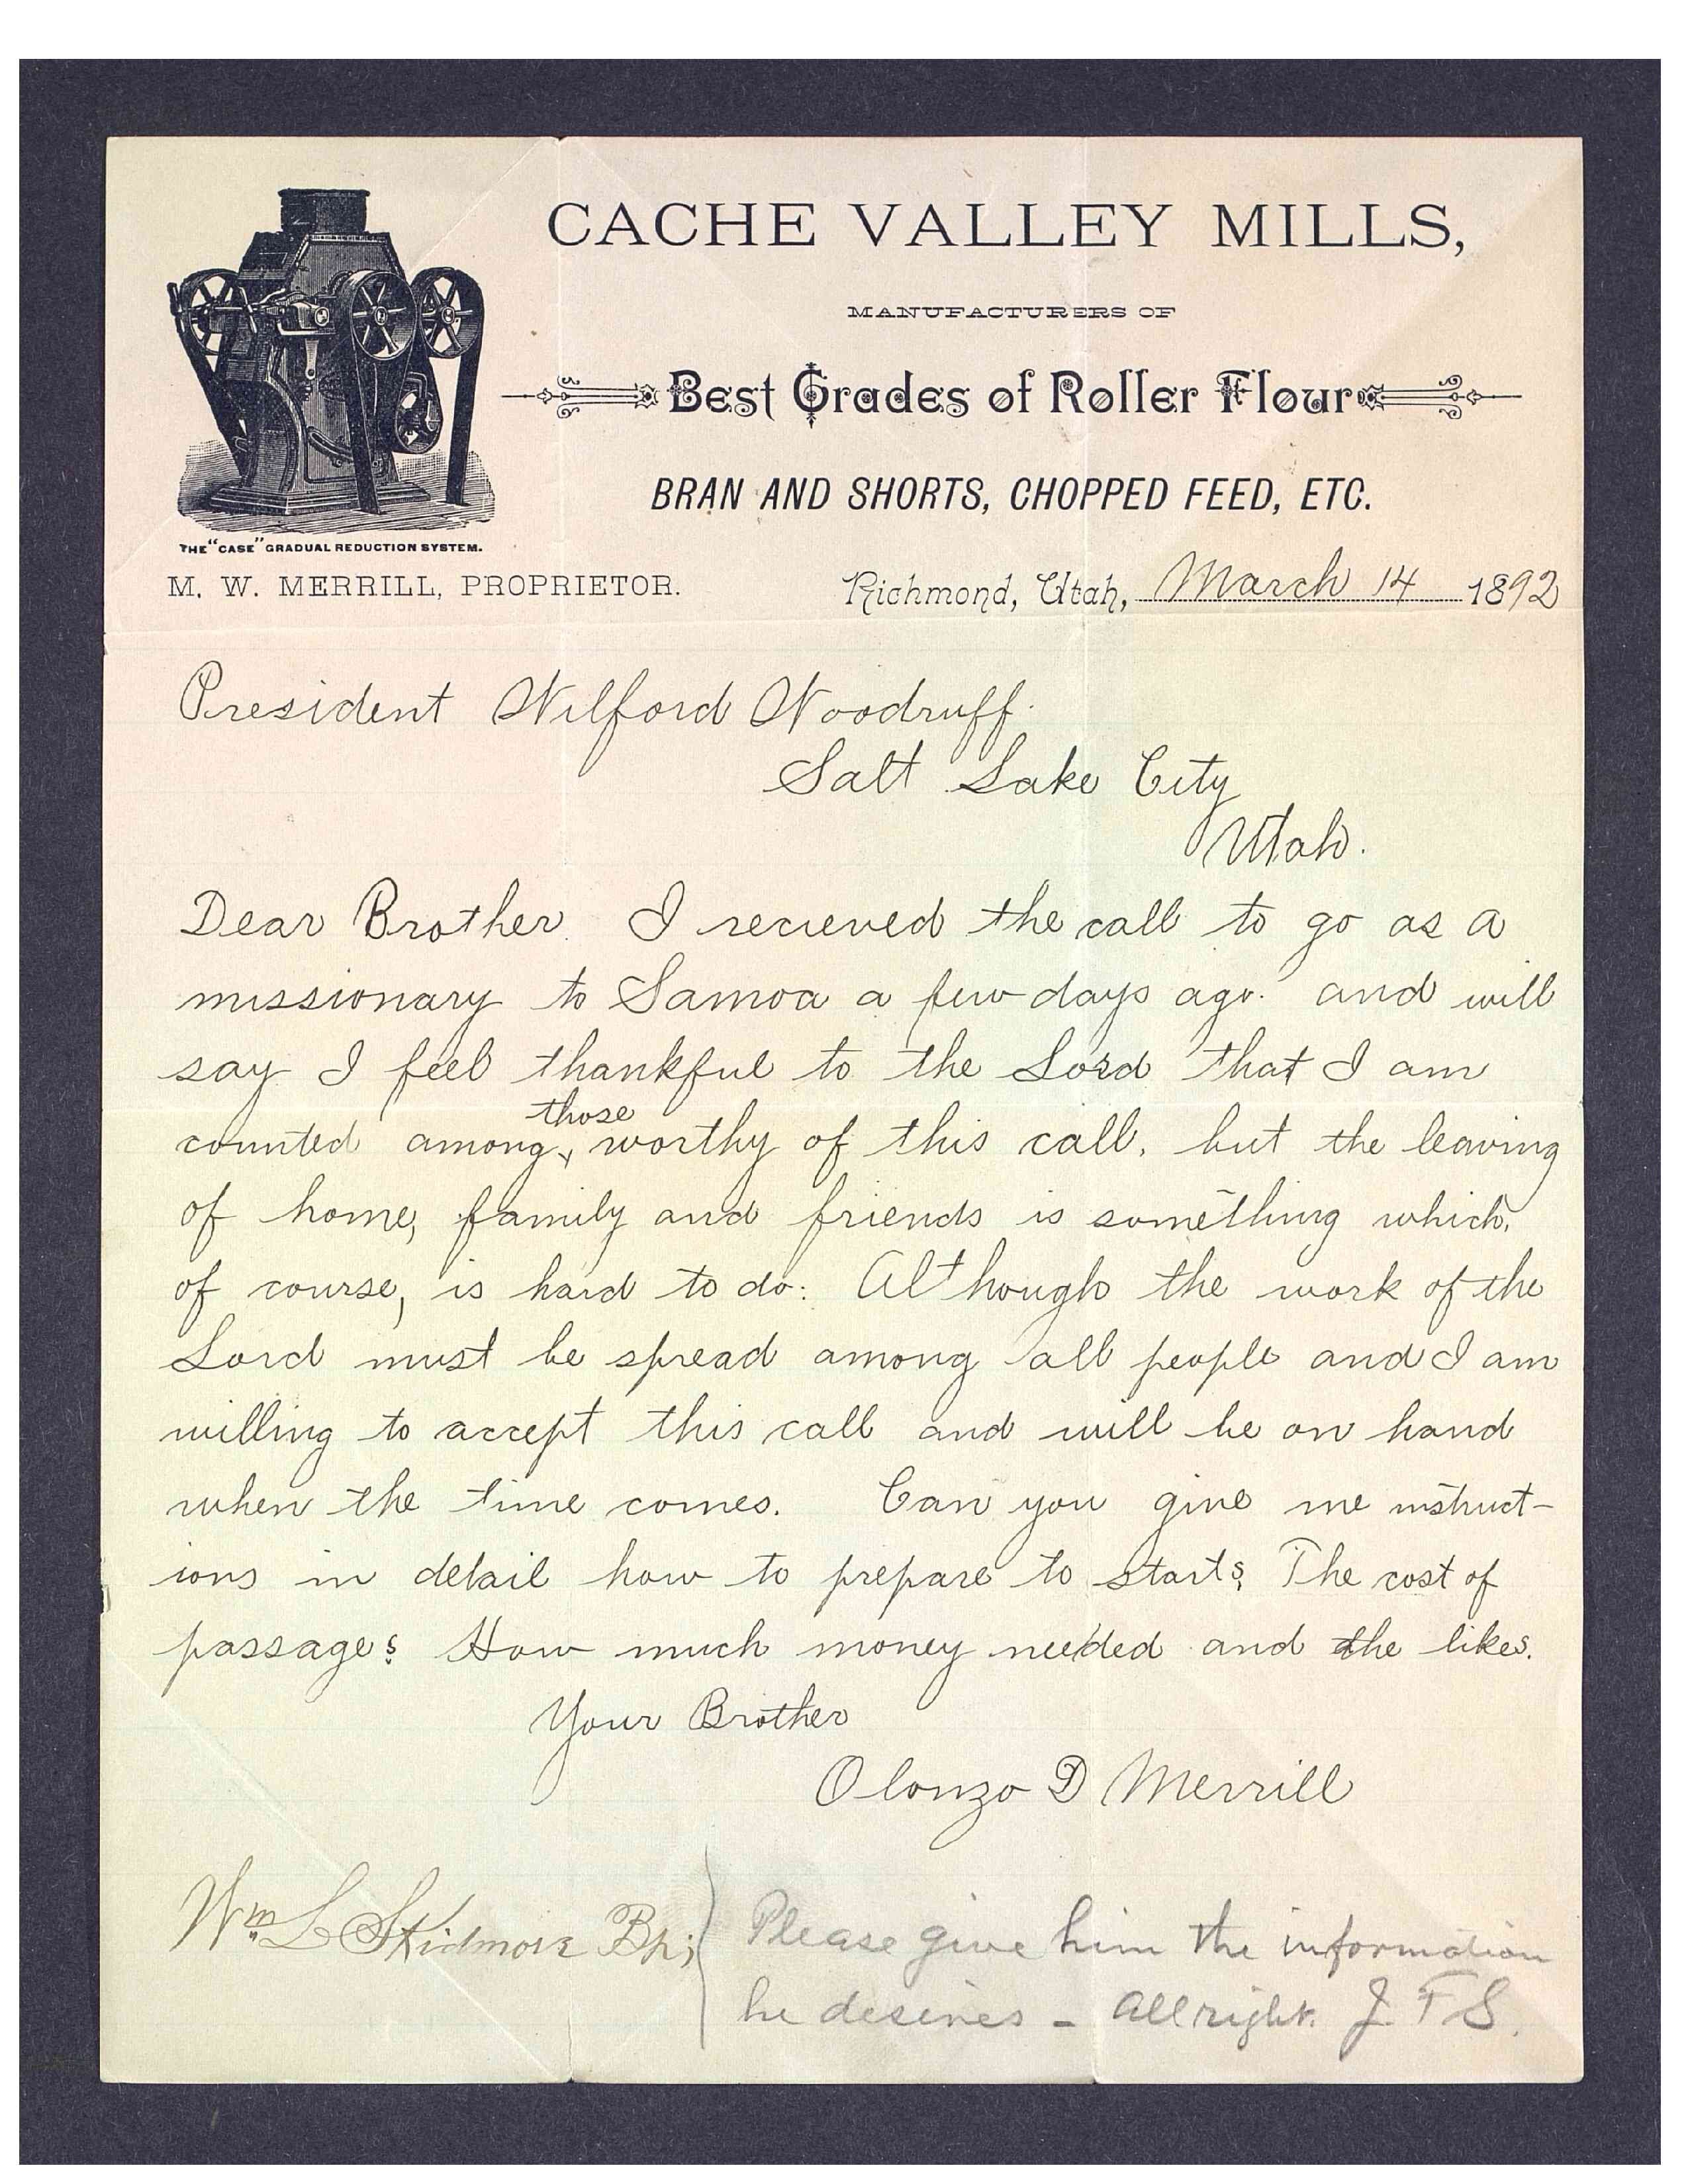 CACHE VALLEY MILLS,
MANUFACTURERS OF
Best Grades of Roller Flour
BRAN AND SHORTS, CHOPPED FEED, ETC.
THE "CASE" GRADUAL REDUCTION SYSTEM.
M. W. MERRILL, PROPRIETOR.
Richmond, Utah, March 14 1892
President Wilford Woodruff.
Salt Lake City
Utah.
Dear Brother. I recieved the call to go as a
missionary to Samoa a few days ago. and will
say I feel thankful to the Lord that I am
those
counted among worthy of this call, but the leaving
of home, family and friends is something which,
of course, is hard to do: Although the work of the
Lord must be spread among all people and I am
willing to accept this call and will be on hand
when the time comes. Can you give me instruct-
ions in detail how to prepare to start? The cost of
passage? How much money needed and the likes.
Your Brother
Olonzo D Merrill
Wm L Skidmore Bp;
Please give him the information
he desires - All right. J. F. S.